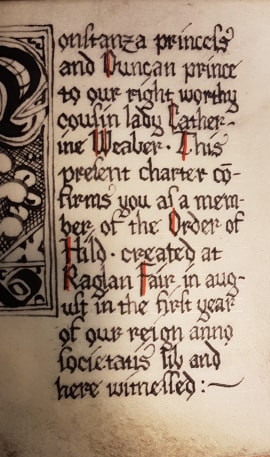 onstanza princess
and Duncan prince
to our right worthy
cousin lady Cather-
ine Weaver · This
present charter cō-
firms you as a mem-
ber of the Order of
Hild · created at
Raglan Fair in aug-
ust in the first year
of our reign anno
societatis liv and
here witnessed :~